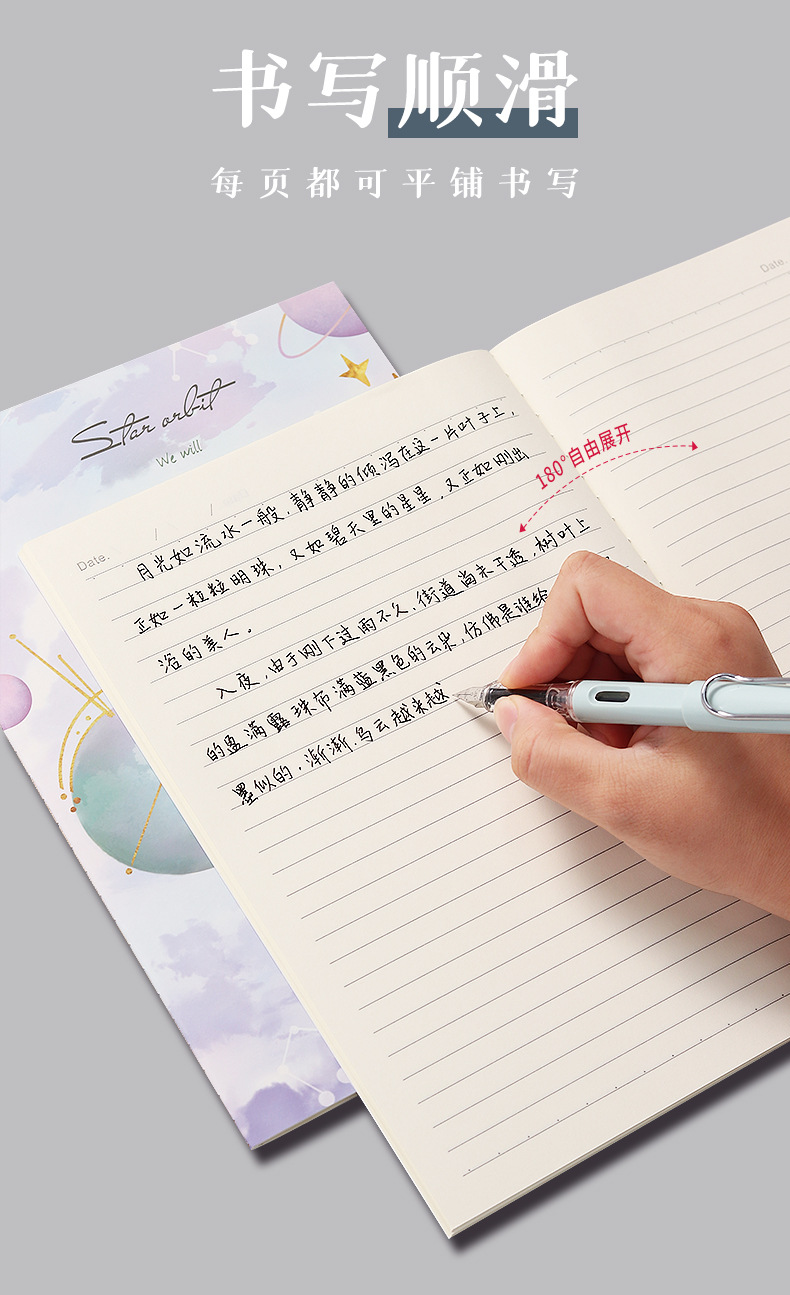 书写顺滑
每页都可平铺书写
Date.
Star orbit
We will
180°自由展开
Date.
月光如流水一般,静静的倾泻在这一片叶子上,
正如一粒粒明珠,又如碧天里的星星,又正如刚出
浴的美人。
入夜,由于刚下过雨不久,街道尚未干透,树叶上
的盈满露珠布满蓝黑色的云朵,仿佛是谁给
墨似的.渐渐.乌云越来越